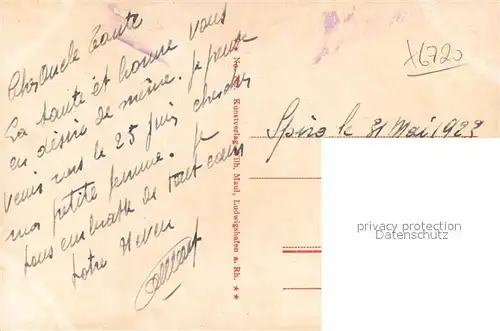 Chers Oncle Tante
La santé est bonne vous
en désire de même. Je pense
venir vers le 25 juin chercher
ma petite femme. Je
vous embrasse de tout cœur
Votre Neveu
No.
Kunstverlag Wilh. Maul, Ludwigshafen a. Rh. ★★
X6720
Spire le 31 Mai 1923
privacy protection
Datenschutz